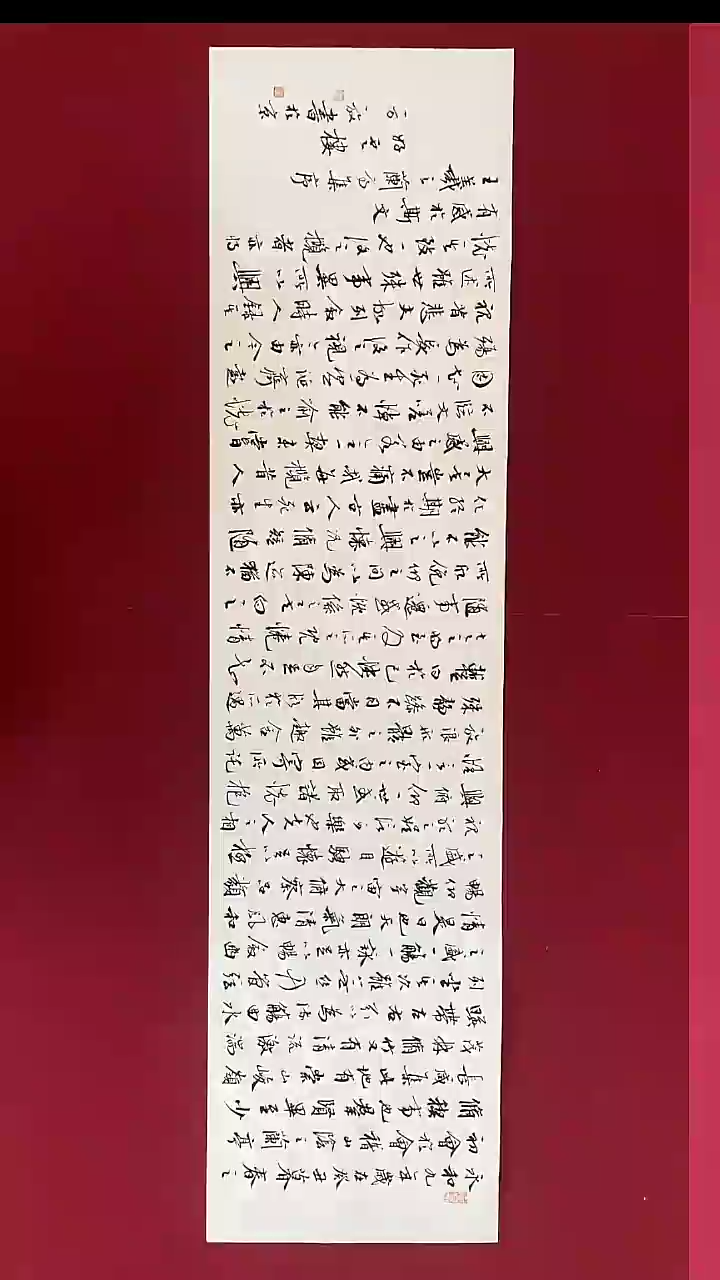 永和九年歲在癸丑暮春之
初會於會稽山陰之蘭亭
脩稧事也羣賢畢至少
長咸集此地有崇山峻領
茂林脩竹又有清流激湍
暎帶左右引以為流觴曲水
列坐其次雖無絲竹管弦
之盛一觴一詠亦足以暢敘幽
情是日也天朗氣清惠風和
暢仰觀宇宙之大俯察品類
之盛所以遊目騁懷足以極
視聽之娛信可樂也夫人之相
與俯仰一世或取諸懷抱
悟言一室之內或因寄所託
放浪形骸之外雖趣舍萬
殊靜躁不同當其欣於所遇
蹔得於己快然自足不知
老之將至及其所之既惓情
隨事遷感慨係之矣向之
所欣俛仰之間以為陳迹猶不
能不以之興懷況脩短隨
化終期於盡古人云死生亦
大矣豈不痛哉每攬昔人
興感之由若合一契未嘗
不臨文嗟悼不能喻之於懷
固知一死生為虛誕齊彭
殤為妄作後之視今亦由今之
視昔悲夫故列敘時人錄其
所述雖世殊事異所以興
懷其致一也後之攬者亦將
有感於斯文
王羲之蘭亭集序
樓
書於京